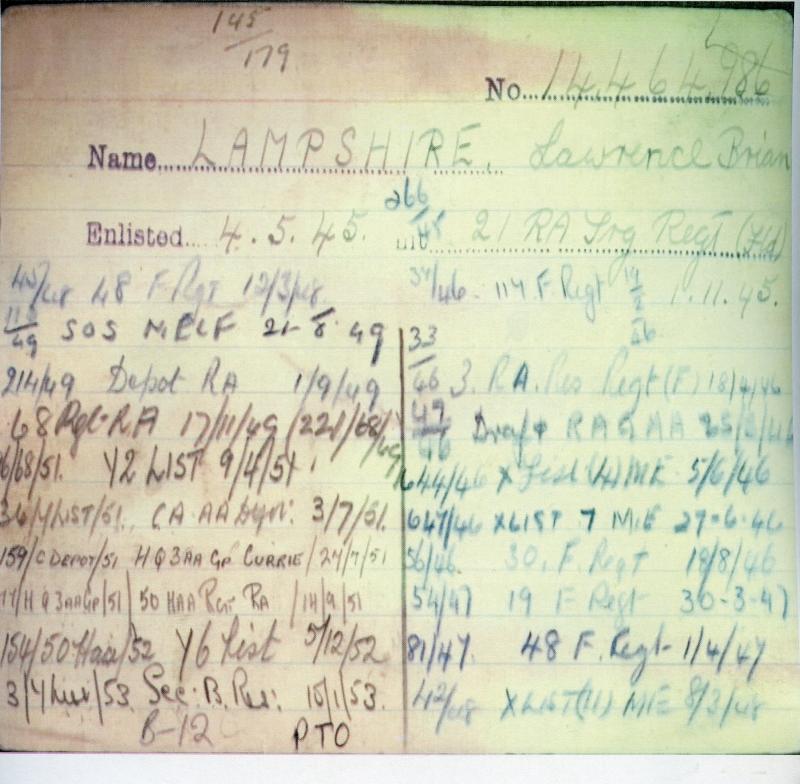 145/179
No. 14464986
Name LAMPSHIRE, Lawrence Brian
266/45
Enlisted 4.5.45. Unit 21 RA Trg Regt (Fld)
45/48 48 F Regt 12/3/48
115/49 SOS MELF 21-8-49
214/49 Depot RA 1/9/49
68 Regt RA 17/11/49 (221/68/49
6/68/51. Y2 LIST 9/4/51
36/Y LIST/51. CA AA 3/7/51.
159/C DEPOT/51 HQ 3AA GP CURRIE 27/7/51
HQ 3AAGP/51 50 HAA RGT RA 14/9/51
154/50 Haa/52 Y6 List 5/12/52
3/Y List/53. Sec. B. Res: 15/1/53.
B-12 PTO
37/46 114 F Regt 1.11.45.
33/46 3. RA. Res Regt (F) 18/4/46
47/46 Draft
644/46 X List (4) ME 5/6/46
647/46 X LIST 7 ME 27-6-46
56/46. 30. F. Regt 18/8/46
54/47 19 F Regt 30-3-47
81/47. 48 F. Regt 1/4/47
42/48 X LIST (11) ME 8/3/48